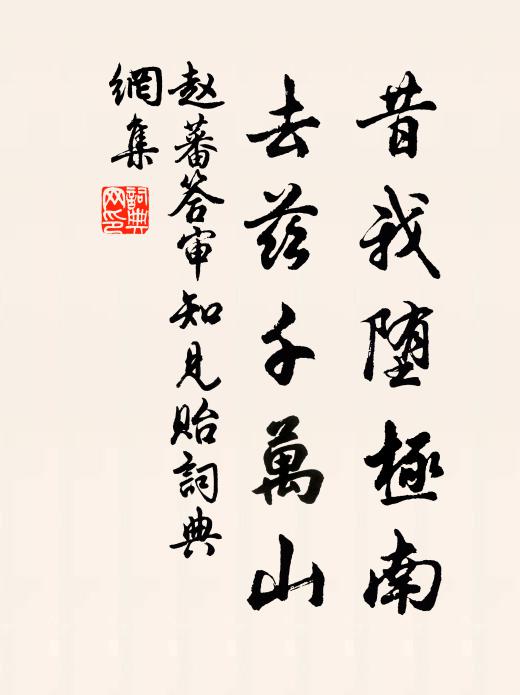 昔我堕極南
去茲千萬山
赵蕃答审知見貽詞典
網集
詞典
网印